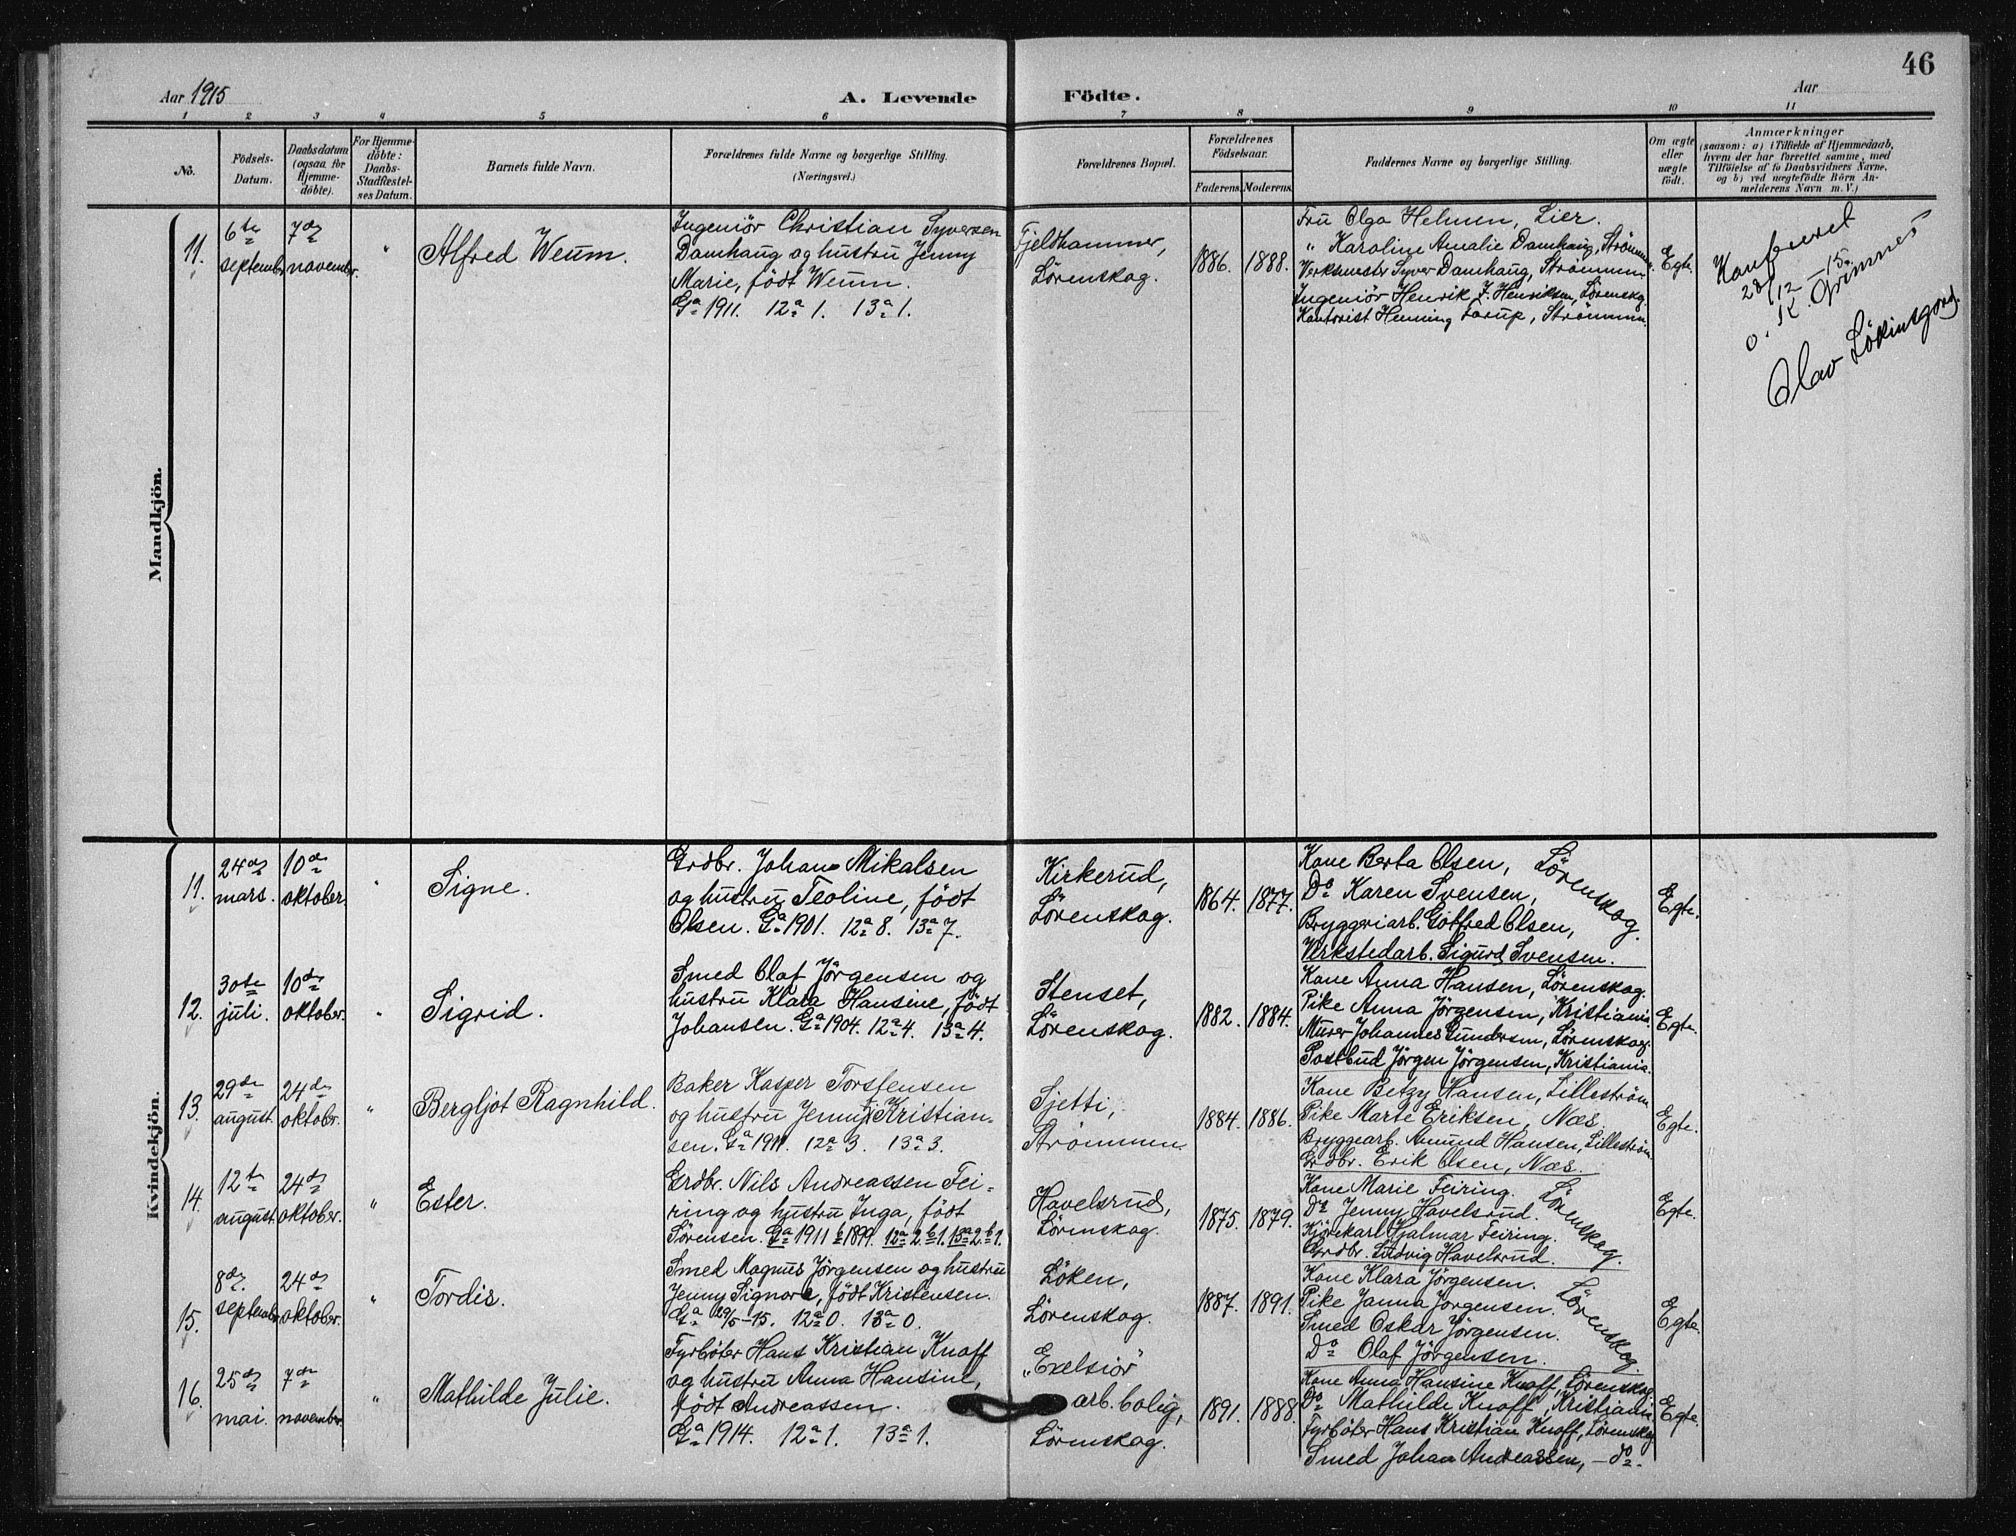 46
Aar 1915
A. Levende Födte.
Aar
1 2 3 4 5 6 7 8 9 10 11
No.
Födsels-
Datum.
Daabsdatum
(ogsaa for
Hjemme-
döbte).
For Hjemme-
döbte:
Daabs-
Stadfæstel-
ses Datum.
Barnets fulde Navn.
Forældrenes fulde Navne og borgerlige Stilling.
(Næringsvei.)
Forældrenes Bopæl.
Forældrenes
Födselsaar.
Faderens. Moderens.
Faddernes Navne og borgerlige Stilling.
Om ægte
eller
uægte
födt.
Anmærkninger
(saasom: a) i Tilfælde af Hjemmedaab,
hvem der har forrettet samme, med
Tilföielse af to Daabsvidners Navne,
og b) ved uægtefödte Börn An-
melderens Navn m. V.)
Mandkjön.
11.
6te
septembr.
7de
novembr.
"
Alfred Weum.
Ingeniör Christian Syversen
Damhaug og hustru Jenny
Marie, født Weum.
Ga 1911. 12a 1. 13a 1.
Fjeldhammer,
Lörenskog.
1886. 1888.
Fru Olga Helmen, Lier.
" Karoline Amalie Damhaug, Strömmen.
Verksmester Syver Damhaug, Strömmen.
Ingeniör Henrik J. Henriksen, Lörenskog.
Kontorist Henning Sarup, Strömmen.
Egte.
28/12 - 15.
O. K. Grimnes
Olav
Kvindekjön.
11.
24de
mars.
10de
oktober.
"
Signe.
Grdbr. Johan Mikalsen
og hustru Teoline, født
Olsen. Ga 1901. 12a 8. 13a 7.
Kirkerud,
Lörenskog.
1864. 1877.
Kone Berta Olsen,
Do Karen Svensen,
Bryggeriarb. Gotfred Olsen,
Verkstedarb. Sigurd Svensen.
Lörenskog.
Egte.
12.
30te
juli.
10de
oktober.
"
Sigrid.
Smed Olaf Jörgensen og
hustru Klara Hansine, født
Johansen. Ga 1904. 12a 4. 13a 4.
Stenset,
Lörenskog.
1882. 1884.
Kone Anna Hansen, Lörenskog.
Pike Anna Jörgensen, Kristiania.
Murer Johannes Gundersen, Lörenskog.
Postbud Jörgen Jörgensen, Kristiania.
Egte.
13.
29de
august.
24de
oktobr.
"
Bergljot Ragnhild.
Baker Kasper Torstensen
og hustru Jenny, f. Kristian-
sen. Ga 1911. 12a 3. 13a 3.
Sjetti,
Strömmen.
1884. 1886.
Kone Betzy Hansen, Lilleström
Pike Marte Eriksen, Næs.
Bryggearb. Amund Hansen, Lilleström
Grdbr. Erik Olsen, Næs.
Egte.
14.
12te
august.
24de
oktober.
"
Ester.
Grdbr. Nils Andreassen Fei-
ring og hustru Inga, født
Sörensen. Ga 1911 b 1899. 12a 2. b 1. 13a 2. b 1.
Havelsrud,
Lörenskog.
1875. 1879.
Kone Marie Feiring.
Do Jenny Havelsrud.
Kjörekarl Hjalmar Feiring.
Grdbr. Ludvig Havelsrud.
Lörenskog.
Egte.
15.
8de
septembr.
24de
oktober.
"
Tordis.
Smed Magnus Jörgensen og hustru
Jenny Signora, født Kristensen.
Ga 29/5-15. 12a 0. 13a 0.
Löken,
Lörenskog.
1887. 1891.
Kone Klara Jörgensen.
Pike Janna Jörgensen.
Smed Oskar Jörgensen.
Do Olaf Jörgensen.
Lörenskog.
Egte.
16.
25de
mai.
7de
november.
"
Mathilde Julie.
Fyrböter Hans Kristian Knoff
og hustru Anna Hansine,
født Andreassen.
Ga 1914. 12a 1. 13a 1.
"Exelsiör"
arb. bolig,
Lörenskog.
1891. 1888.
Kone Anna Hansine Knoff, Lörenskog
Do Mathilde Knoff, Kristiania.
Fyrböter Hans Kristian Knoff, Lörenskog
Smed Johan Andreassen, - do -
Egte.